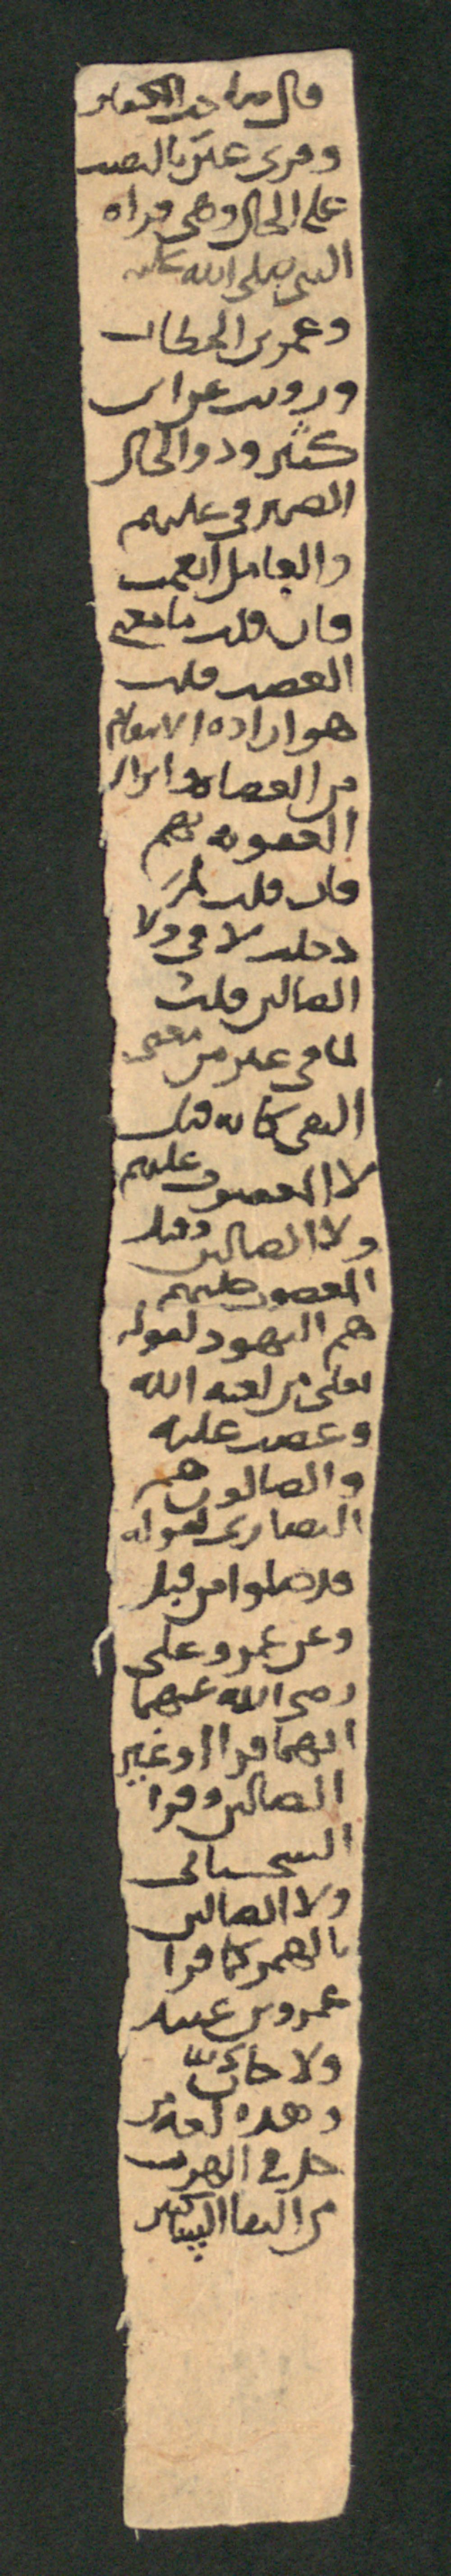 قال صاحب الكشاف
وقرئ غير بالنصب
على الحال وهي قراه
النبي صلى الله عليه
وعمر بن الخطاب
ورويت عن ابن
كثير وذو الحال
الضمير في عليهم
والعامل انعمت
فان قلت ما معنى
الغضب قلت
هو اراده الانتقام
من العصاه وانزال
العقوبه بهم
فان قلت لم
دخلت لا في ولا
الضالين قلت
لما في غير من معنى
النفي كانه قيل
لا المغضوب عليهم
ولا الضالين وقيل
المغضوب عليهم
هم اليهود لقوله
تعلى من لعنه الله
وغضب عليه
والضالون هم
النصارى لقوله
قد ضلوا من قبل
وعن عمر وعلي
رضي الله عنهما
انهما قراا وغير
الضالين وقرا
السختياني
ولا الضالين
بالهمز كما قرا
عمرو بن عبيد
ولا جان
وهذه لغه من
جد في الهرب
من التقا الساكنين